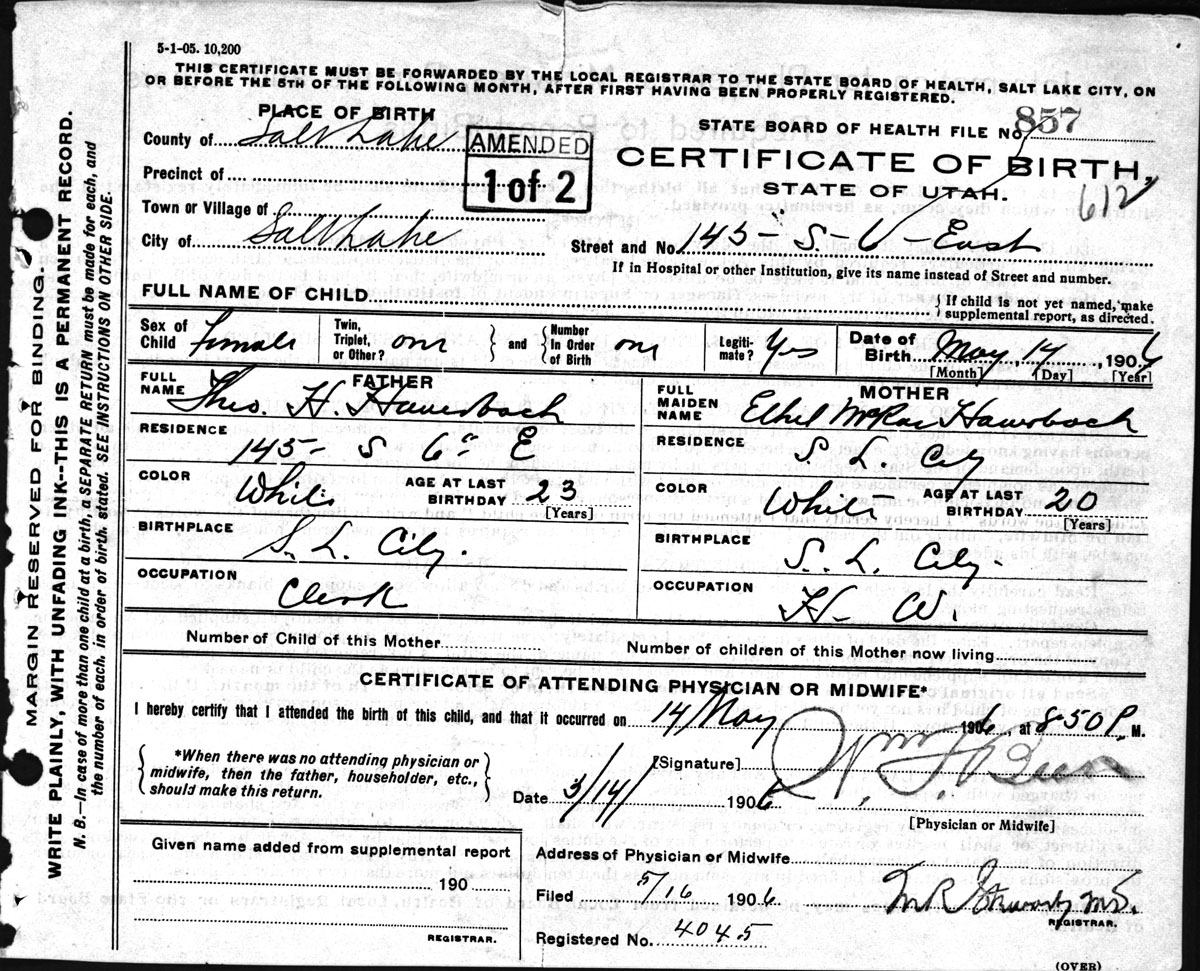 5-1-05. 10,200
THIS CERTIFICATE MUST BE FORWARDED BY THE LOCAL REGISTRAR TO THE STATE BOARD OF HEALTH, SALT LAKE CITY, ON
OR BEFORE THE 5TH OF THE FOLLOWING MONTH, AFTER FIRST HAVING BEEN PROPERLY REGISTERED.
PLACE OF BIRTH
County of Salt Lake
Precinct of
Town or Village of
City of Salt Lake
AMENDED
1 of 2
STATE BOARD OF HEALTH FILE No. 857
CERTIFICATE OF BIRTH,
STATE OF UTAH.
612
Street and No. 145 - S - 6 East
If in Hospital or other Institution, give its name instead of Street and number.
FULL NAME OF CHILD
If child is not yet named, make
supplemental report, as directed.
Sex of Child Female
Twin, Triplet, or Other? one
and
Number In Order of Birth one
Legitimate? Yes
Date of Birth May, 14, 1906
[Month] [Day] [Year]
FATHER
FULL NAME Theo. H. Hauerbach
RESIDENCE 145 - S 6th E
COLOR White
AGE AT LAST BIRTHDAY 23
[Years]
BIRTHPLACE S. L. City.
OCCUPATION Clerk
MOTHER
FULL MAIDEN NAME Ethel McRae Hauerbach
RESIDENCE S. L. City
COLOR White
AGE AT LAST BIRTHDAY 20
[Years]
BIRTHPLACE S. L. City.
OCCUPATION H. W.
Number of Child of this Mother
Number of children of this Mother now living
CERTIFICATE OF ATTENDING PHYSICIAN OR MIDWIFE*
I hereby certify that I attended the birth of this child, and that it occurred on 14 May 1906, at 8-50 P. M.
*When there was no attending physician or
midwife, then the father, householder, etc.,
should make this return.
[Signature]
Date 3/14/ 1906
[Physician or Midwife]
Given name added from supplemental report
190
REGISTRAR.
Address of Physician or Midwife
Filed 5/16 1906
REGISTRAR.
Registered No. 4045
(OVER)
MARGIN RESERVED FOR BINDING.
WRITE PLAINLY, WITH UNFADING INK--THIS IS A PERMANENT RECORD.
N. B.—In case of more than one child at a birth, a SEPARATE RETURN must be made for each, and
the number of each, in order of birth, stated. SEE INSTRUCTIONS ON OTHER SIDE.